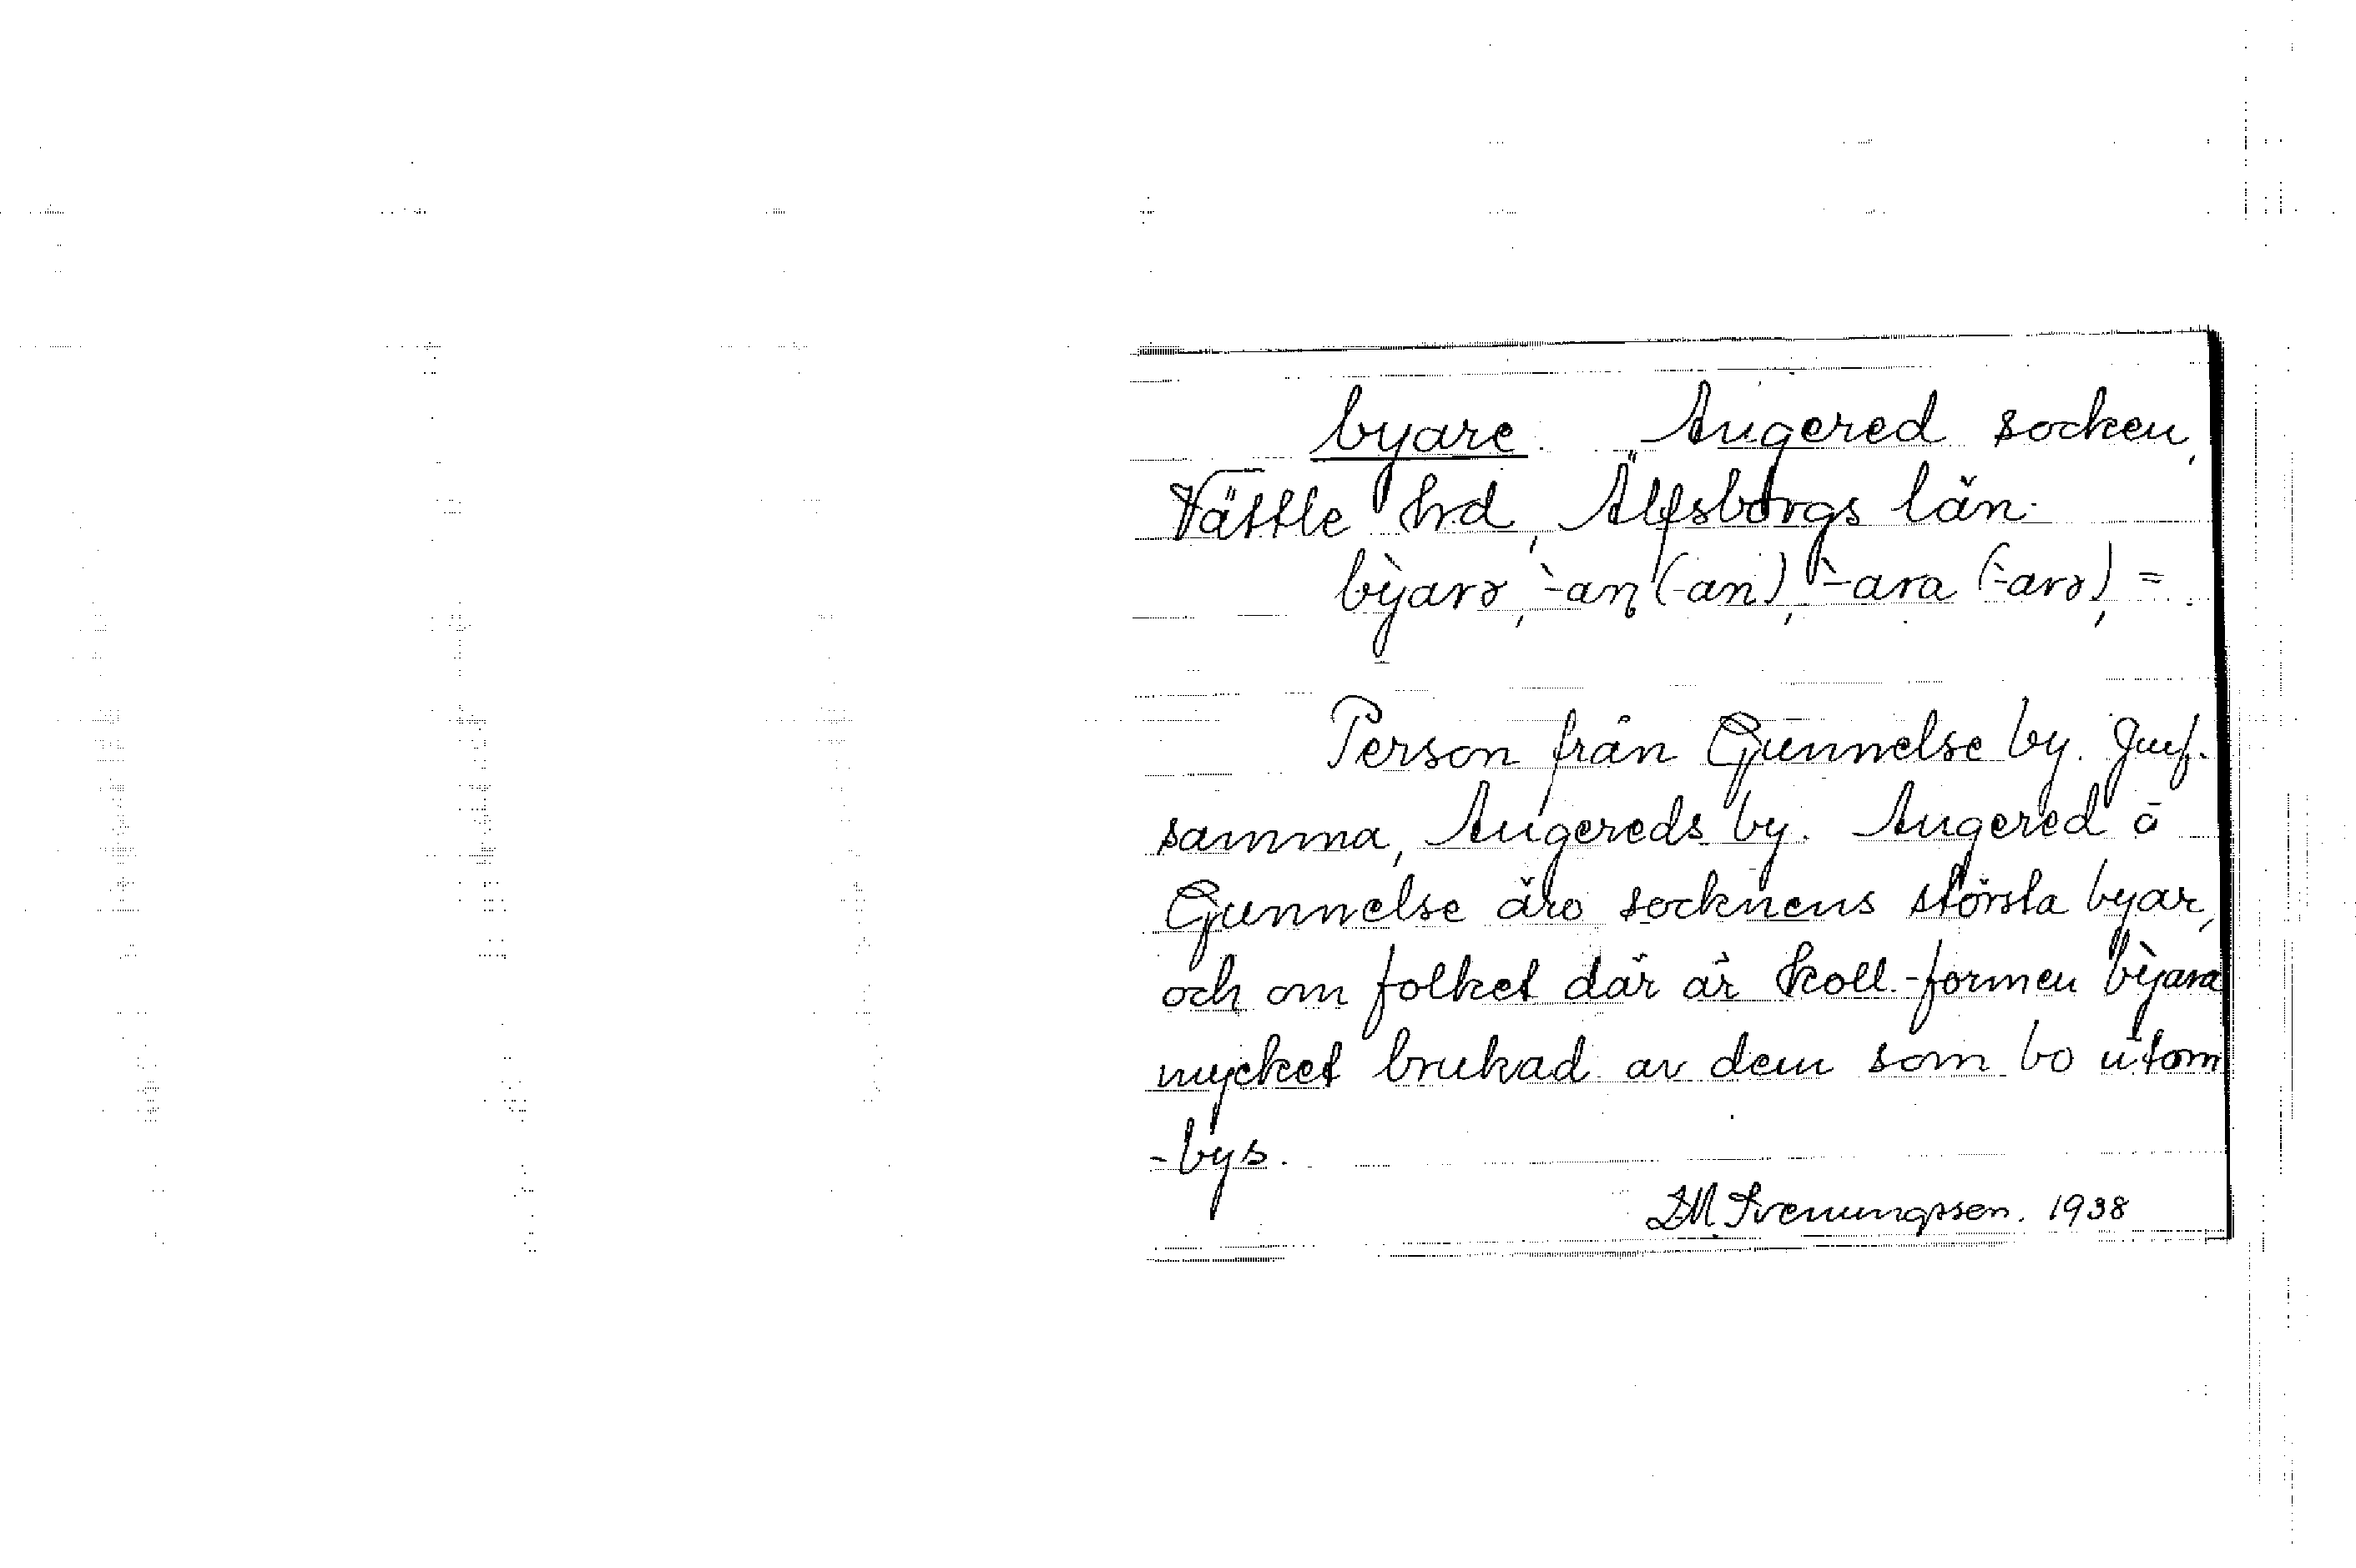 byare. Angered socken,
Vättle hrd, Älfsborgs län.
bỳarə, `-an̥ (-an), `-ara (`-arə), =
Person från Gunnelse by. Jmf.
samma, Angereds by. Angered o
Gunnelse äro socknens största byar,
och om folket där är koll.-formen bỳara
mycket brukad av dem som bo utom
-bys.
Svenungsson. 1938